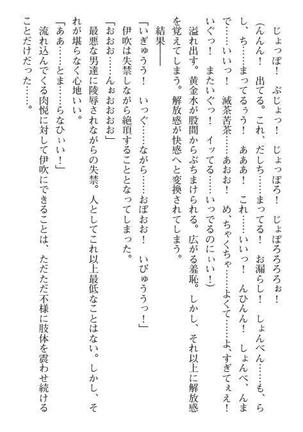 じょっぽ！　ぷじょっ！　じょっぽろ！　じょぽろろろろぉ！
（んんん！　出てる。これ、だしち……まってる！　お漏らし！　しょんべん……も、ら
し、ち……まってるぅ！　あああ！　これ……いいっ！　んひんん！　しょんべ、んま
で……いいっ！　滅茶苦茶……あおぉ！　め、ちゃくちゃ……よくて……よ、すぎてぇえ！
いぐっ！　またいぐっ！　イッてる……いっでるのにぃい！）
溢れ出す。黄金水が股間からぶちまけられる。広がる羞恥。しかし、それ以上に解放感
を覚えてしまう。解放感が快感へと変換されてしまう。
結果――
「いぎゅうう！　いっぐ……ながら……おぼおお！　いびゅううっ！」
伊吹は失禁しながら絶頂することとなってしまった。
「おおお……んぉおおおおお！」
最悪な男達に陵辱されながらの失禁。人としてこれ以上最低なことはない。しかし、そ
れが堪らなく心地いい。
「ああ……とま……らなひぃい！」
流れ込んでくる肉悦に対して伊吹にできることは、ただただ不様に肢体を震わせ続ける
ことだけだった……。